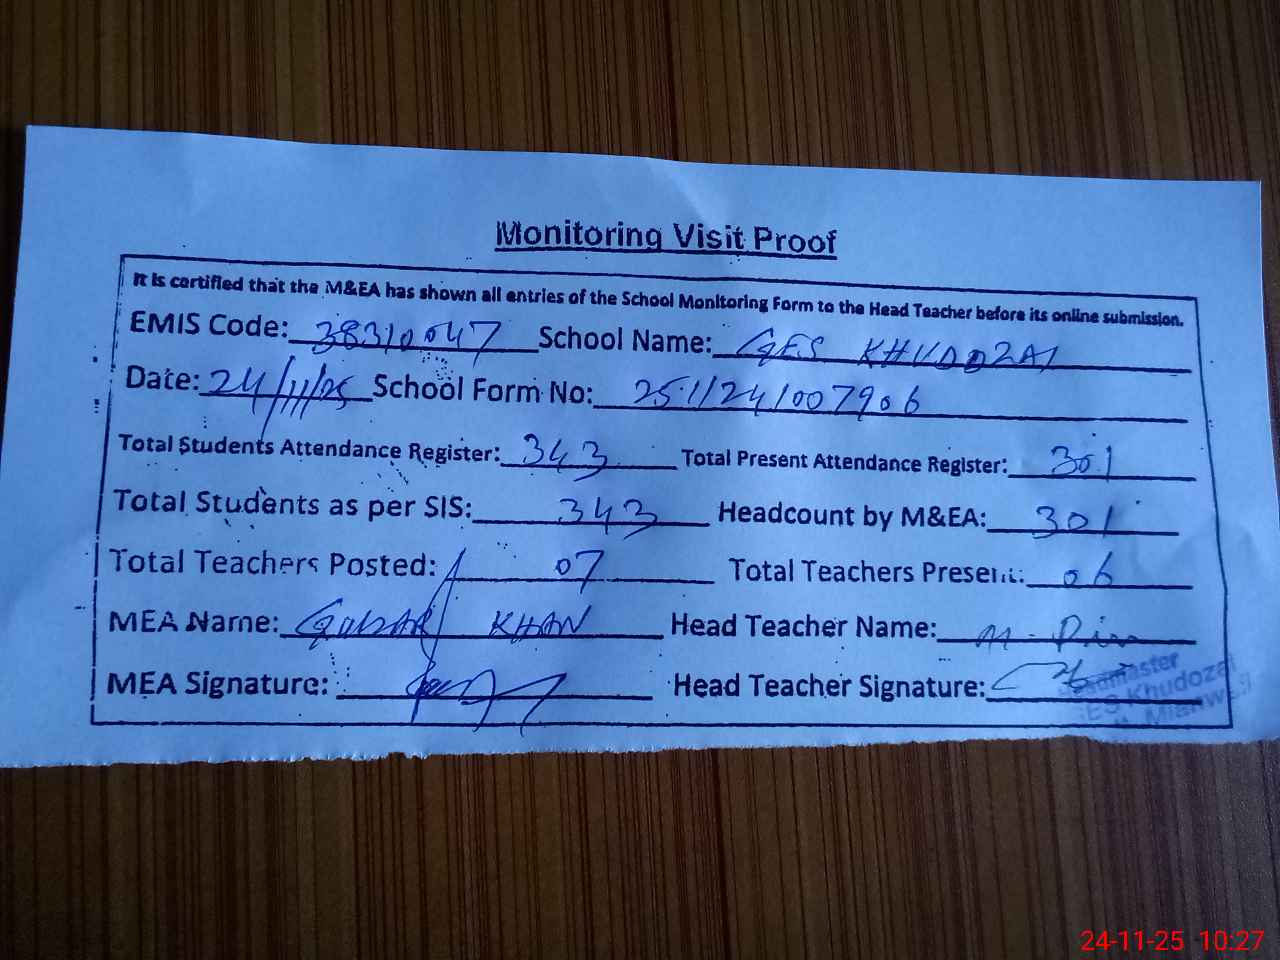 Monitoring Visit Proof
It is certified that the M&EA has shown all entries of the School Monitoring Form to the Head Teacher before its online submission.
EMIS Code: 38310047 School Name: GES KHUDOZAI
Date: 24/11/25 School Form No: 251124007906
Total Students Attendance Register: 343 Total Present Attendance Register: 301
Total Students as per SIS: 343 Headcount by M&EA: 301
Total Teachers Posted: 07 Total Teachers Present: 06
MEA Name: KHAN Head Teacher Name: M. Din
MEA Signature: Head Teacher Signature:
Headmaster
GES Khudozai
Mianwali
24-11-25 10:27